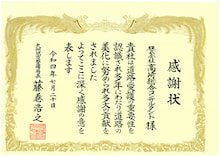 感謝状
株式会社高崎総合コンサルタント様
貴社は道路愛護の重要性を
認識され多年にわたり道路の
美化に努められ多大な貢献を
されました
よってここに深く感謝の意を
表します
令和四年七月二十日
藤巻浩之